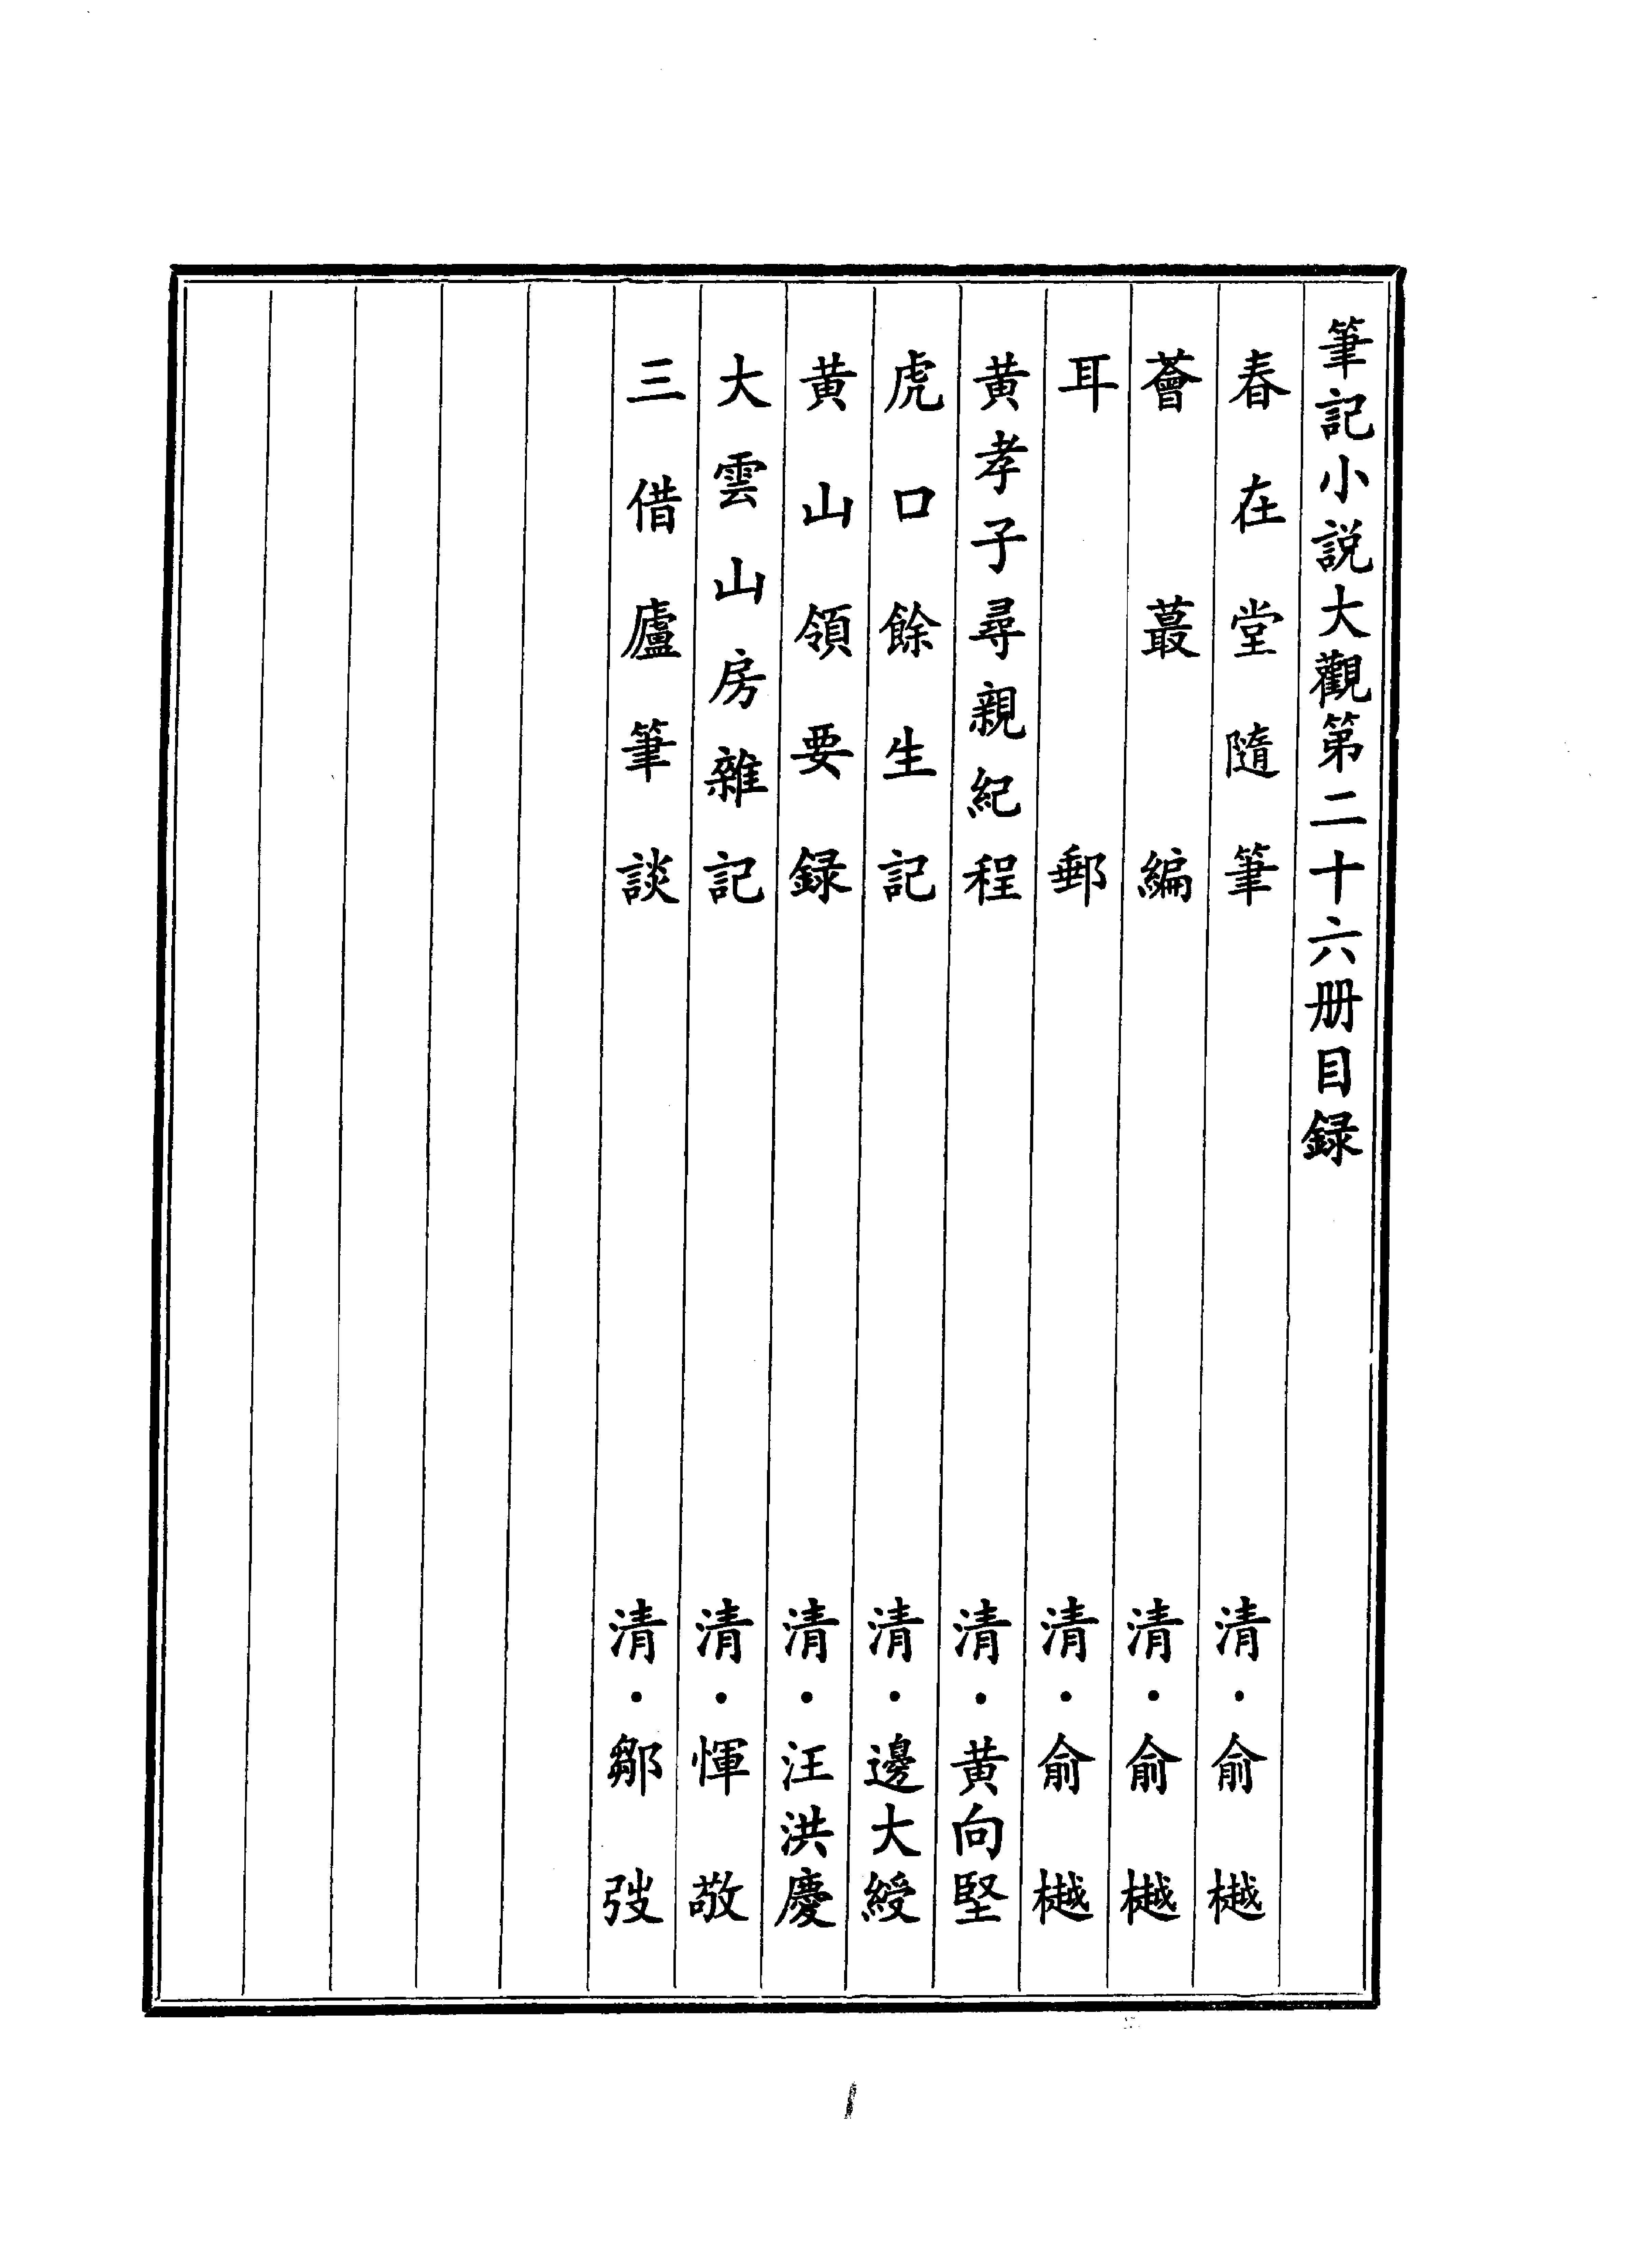 筆記小説大觀第二十六册目録
春在堂隨筆 清·俞樾
薈蕞編 清·俞樾
耳郵 清·俞樾
黄孝子尋親紀程 清·黄向堅
虎口餘生記 清·邊大綬
黄山領要録 清·汪洪慶
大雲山房雜記 清·惲敬
三借廬筆談 清·鄒弢
1